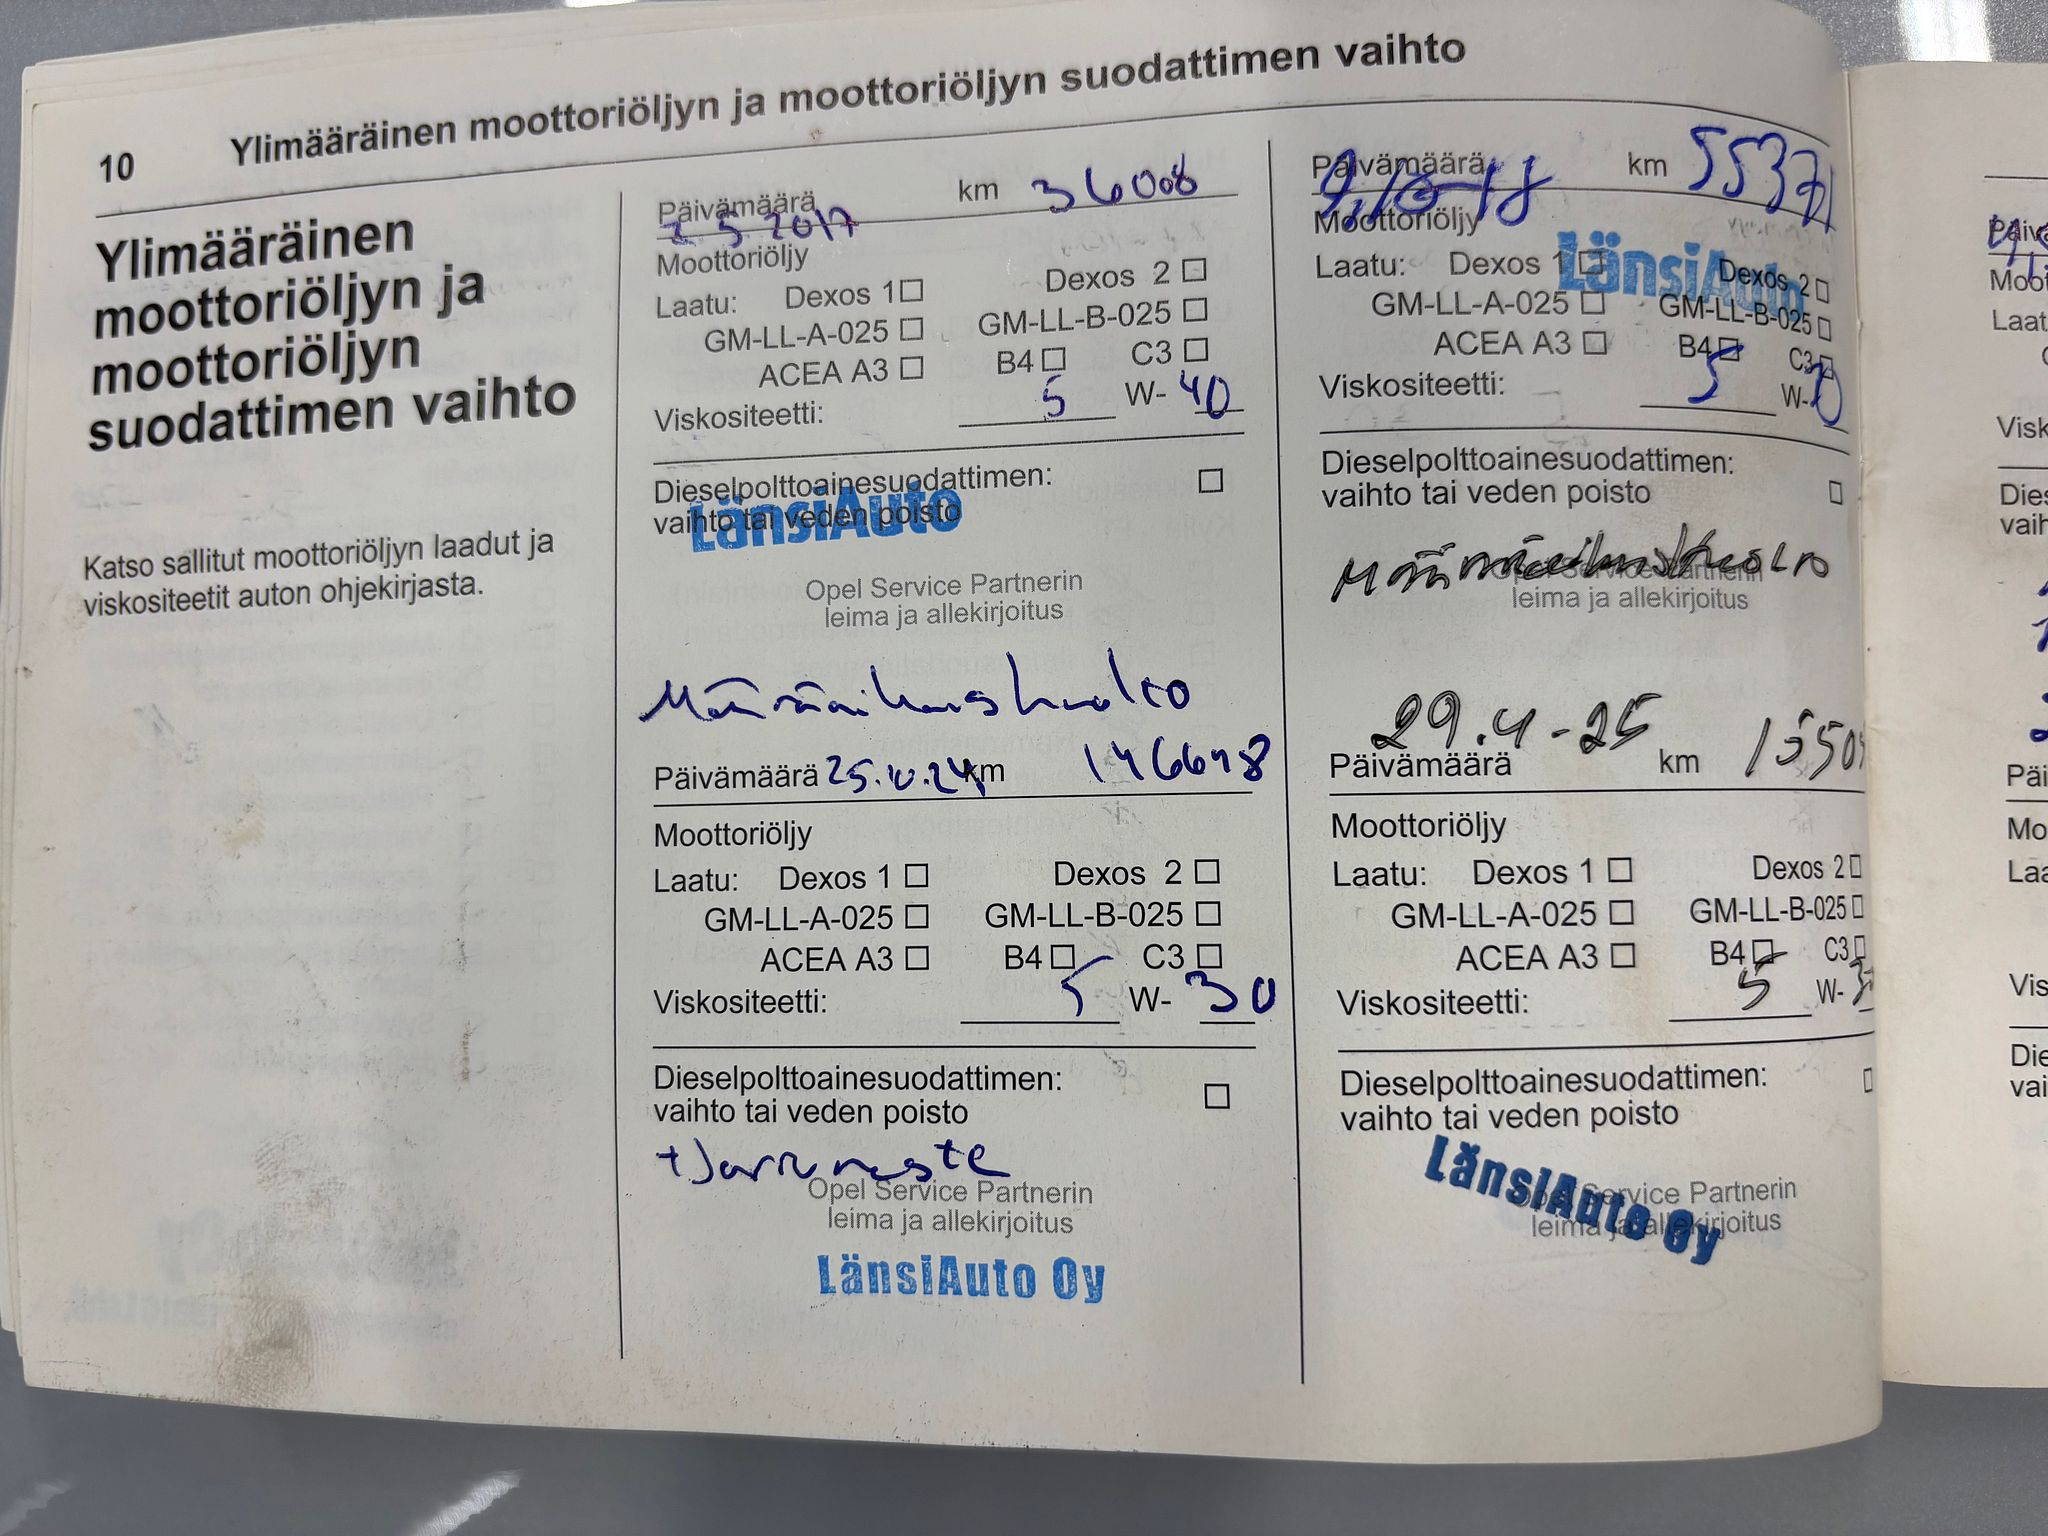 10 Ylimääräinen moottoriöljyn ja moottoriöljyn suodattimen vaihto
Ylimääräinen
moottoriöljyn ja
moottoriöljyn
suodattimen vaihto
Katso sallitut moottoriöljyn laadut ja
viskositeetit auton ohjekirjasta.
Päivämäärä 2 5 2017 km 36008
Moottoriöljy
Laatu: Dexos 1 Dexos 2
GM-LL-A-025 GM-LL-B-025
ACEA A3 B4 C3
Viskositeetti: 5 W- 40
Dieselpolttoainesuodattimen:
vaihto tai veden poisto
LänsiAuto
Opel Service Partnerin
leima ja allekirjoitus
Määräaikaishuolto
Päivämäärä km
Moottoriöljy
Laatu: Dexos 1 Dexos 2
GM-LL-A-025 GM-LL-B-025
ACEA A3 B4 C3
Viskositeetti: 5 W- 30
Dieselpolttoainesuodattimen:
vaihto tai veden poisto
+Jarruneste
Opel Service Partnerin
leima ja allekirjoitus
LänsiAuto Oy
Päivämäärä km 55371
Moottoriöljy
LänsiAuto
Laatu: Dexos 1 Dexos 2
GM-LL-A-025 GM-LL-B-025
ACEA A3 B4 C3
Viskositeetti: 5 W-
Dieselpolttoainesuodattimen:
vaihto tai veden poisto
Määräaikaishuolto
Opel Service Partnerin
leima ja allekirjoitus
29.4-25
Päivämäärä km
Moottoriöljy
Laatu: Dexos 1 Dexos 2
GM-LL-A-025 GM-LL-B-025
ACEA A3 B4 C3
Viskositeetti: 5 W-
Dieselpolttoainesuodattimen:
vaihto tai veden poisto
LänsiAuto Oy
Opel Service Partnerin
leima ja allekirjoitus